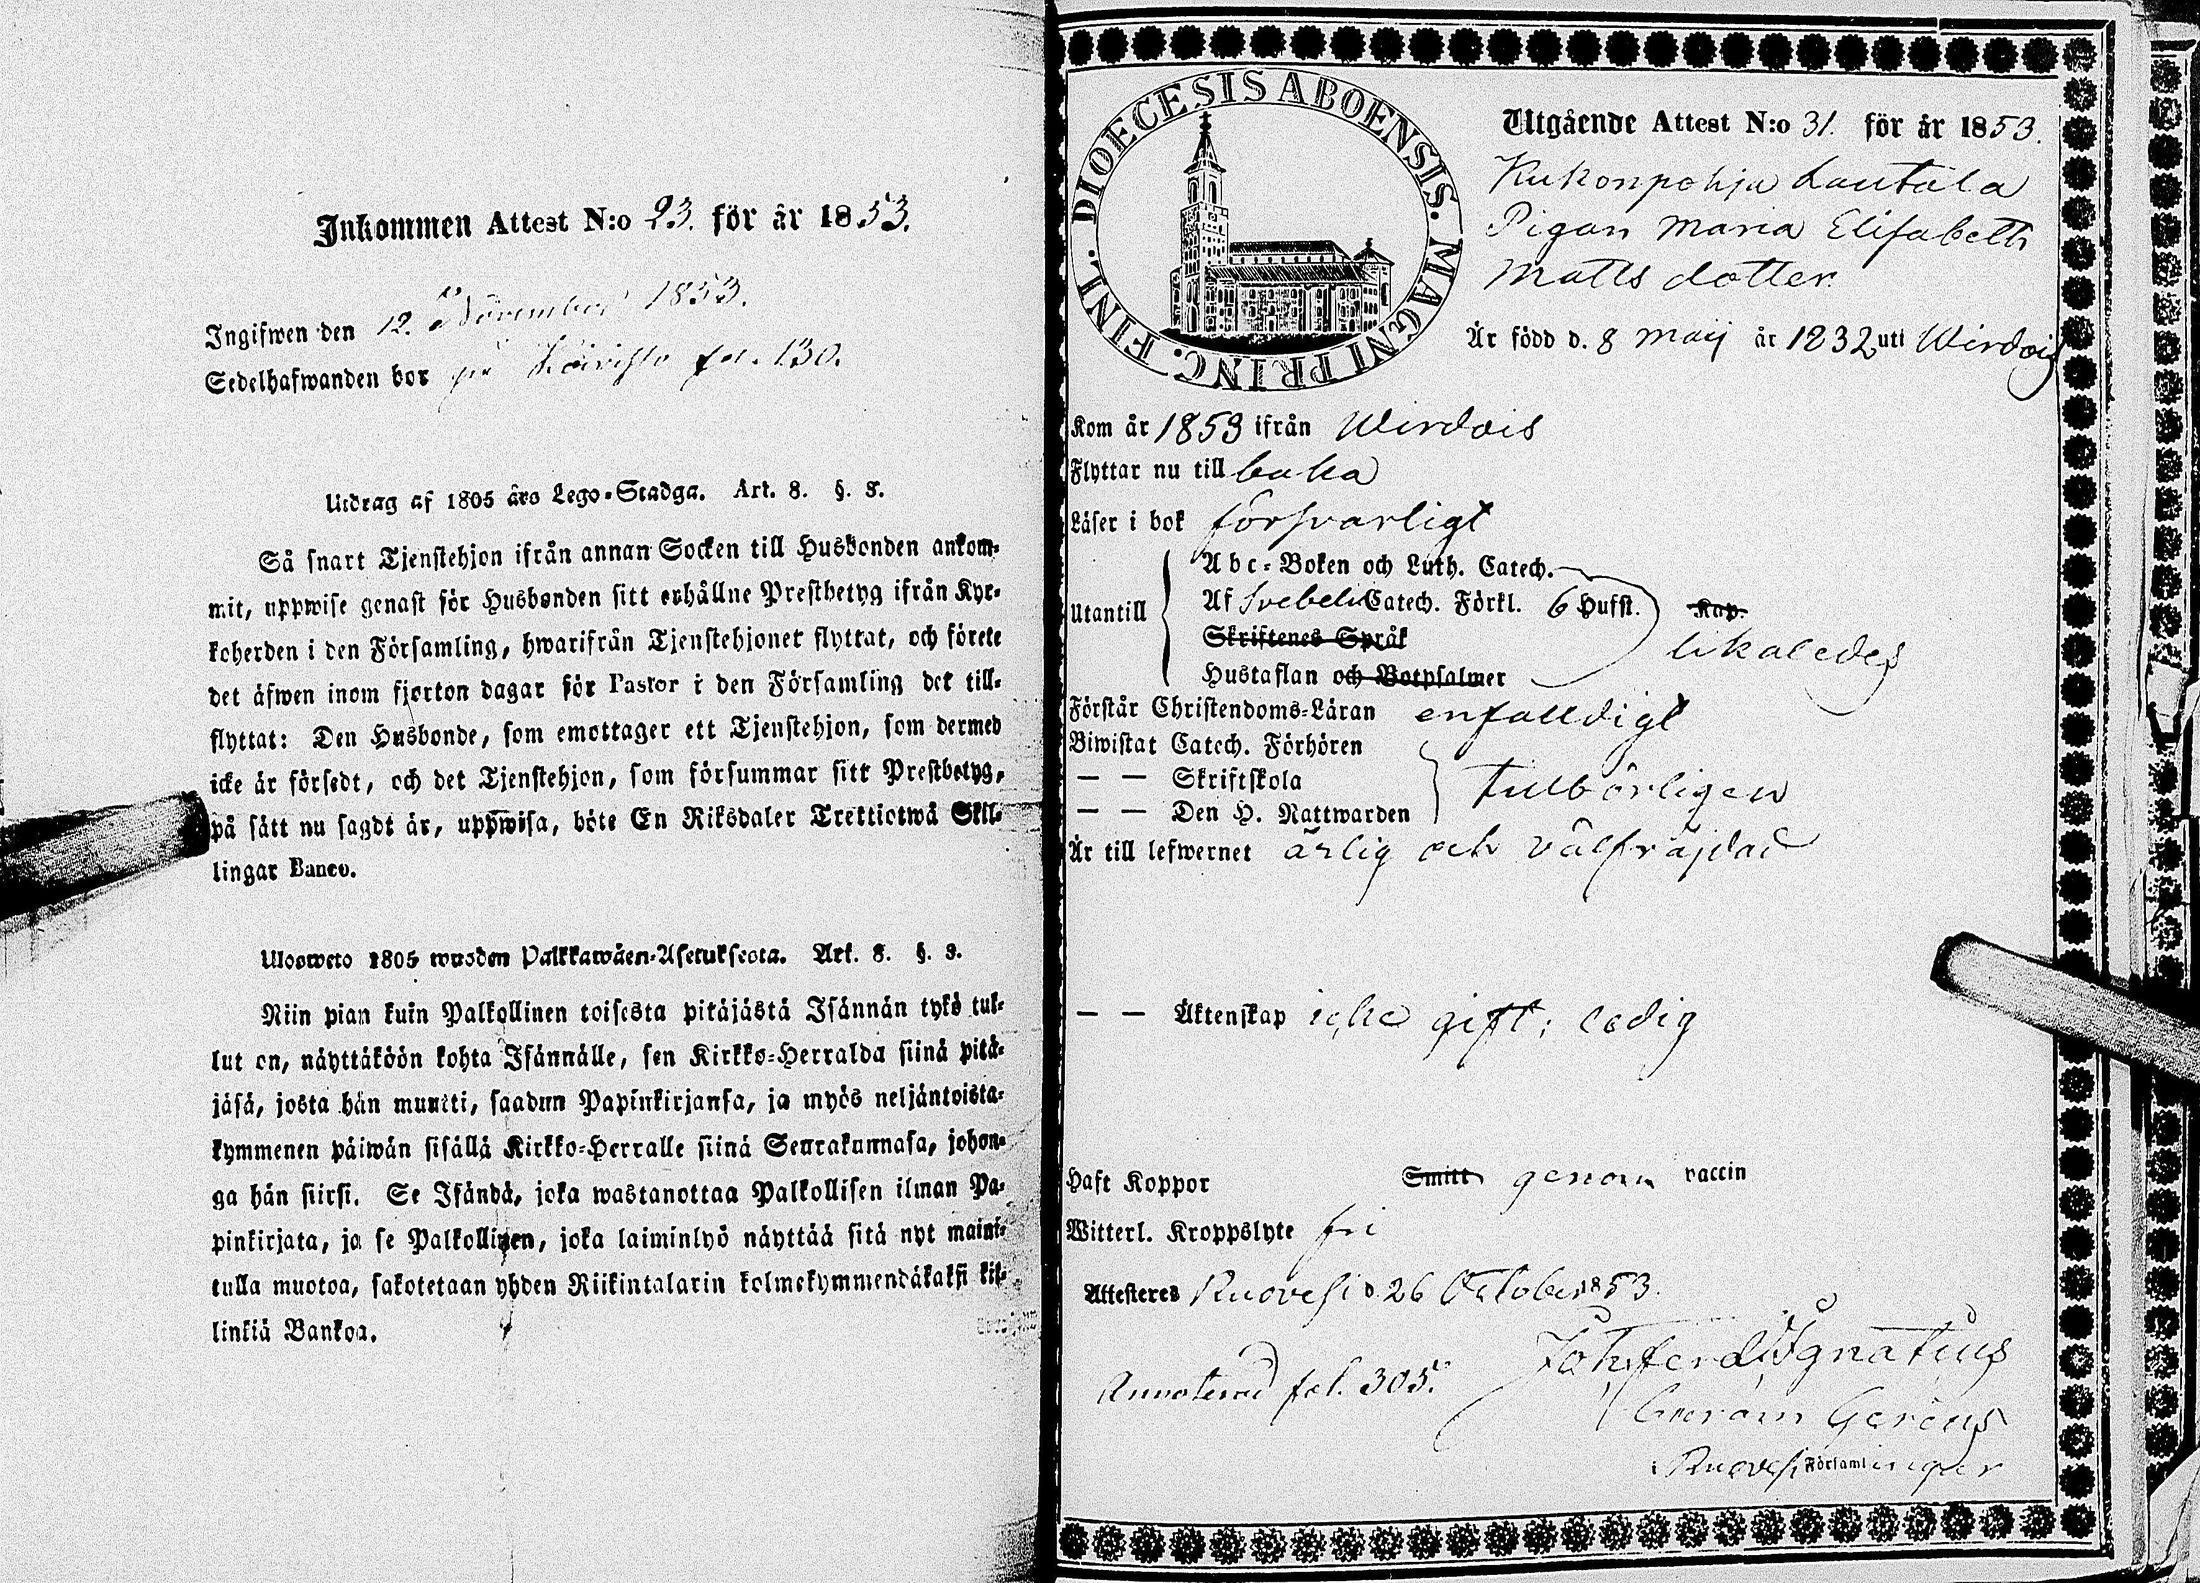 Inkommen Attest N:o 23. för år 1853.
Ingifwen den 12. November 1853.
Sedelhafwanden bor på Koivisto fol. 130.
Utdrag af 1805 års Lego-Stadga. Art. 8. §. 8.
Så snart Tjenstehjon ifrån annan Socken till Husbonden ankom-
mit, uppwise genast för Husbonden sitt erhållne Prestbetyg ifrån Kyr-
koherden i den Församling, hwarifrån Tjenstehjonet flyttat, och förete
det äfwen inom fjorton dagar för Pastor i den Församling det till-
flyttat: Den Husbonde, som emottager ett Tjenstehjon, som dermed
icke är försedt, och det Tjenstehjon, som försummar sitt Prestbetyg,
på sätt nu sagdt är, uppwisa, böte En Riksdaler Trettiotwå Skil-
lingar Banco.
Ulosweto 1805 wuoden Palkkawäen-Asetuksesta. Art. 8. §. 8.
Niin pian kuin Palkollinen toisesta pitäjästä Isännän tykö tul-
lut on, näyttäköön kohta Isännälle, sen Kirkko-Herralda siinä pitä-
jäsä, josta hän muutti, saadun Papinkirjansa, ja myös neljäntoista-
kymmenen päiwän sisällä Kirkko-Herralle siinä Seurakunnasa, johon-
ga hän siirsi. Se Isändä, joka wastanottaa Palkollisen ilman Pa-
pinkirjata, ja se Palkollinen, joka laiminlyö näyttää sitä nyt maini-
tulla muotoa, sakotetaan yhden Riikintalarin kolmekymmendäkaksi kil-
linkiä Bankoa.
DIOECESIS ABOENSIS. MAGNI PRINC. FINL.
Utgående Attest N:o 31. för år 1853.
Kukonpohja Lautala
Pigan Maria Elisabeth
Matts dotter.
Är född d. 8 Maij år 1832 uti Wirdois
Kom år 1853 ifrån Wirdois
Flyttar nu till baka
Läser i bok försvarligt
Utantill
Abc-Boken och Luth. Catech.
Af Svebelii Catech. Förkl. 6 Hufst. Kap.
Skriftenes Språk likaledes
Hustaflan och Botpsalmer
Förstår Christendoms-Läran enfalldigt
Biwistat Catech. Förhören
— — Skriftskola tillbörligen
— — Den H. Nattwarden
Är till lefwernet ärlig och välfräjdad
— — Äktenskap icke gift; ledig
Haft Koppor Smitt genom vaccin
Witterl. Kroppslyte fri
Attesteres Ruovesi d. 26 October 1853.
Joh. Ferd. Ignatius
Annoterad fol. 305.
i Ruovesi Församlingar